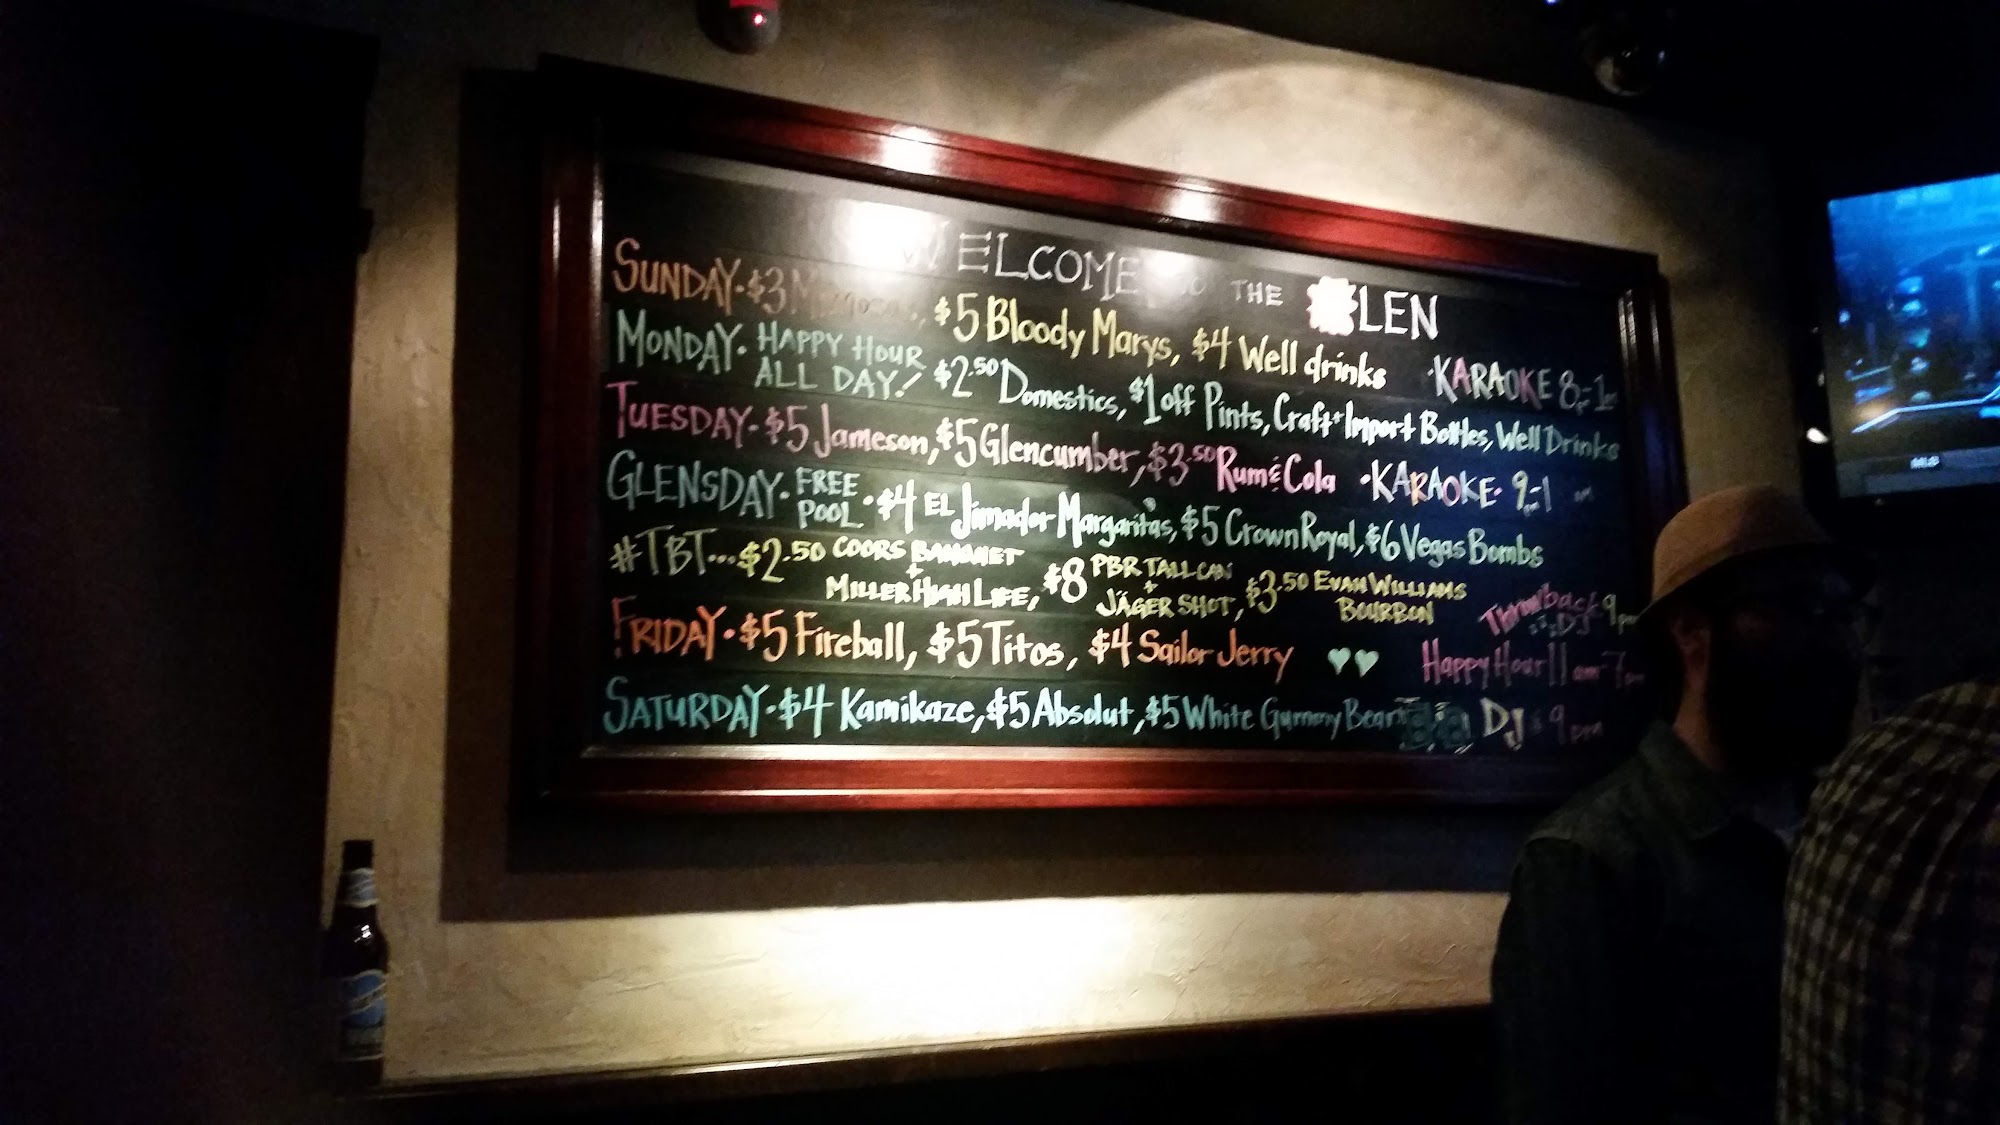 WELCOME TO THE GLEN
SUNDAY • $3 Mimosas, $5 Bloody Marys, $4 Well drinks • KARAOKE 8pm-1am
MONDAY • HAPPY HOUR ALL DAY! $2.50 Domestics, $1 off Pints, Craft + Import Bottles, Well Drinks
TUESDAY • $5 Jameson, $5 Glencumber, $3.50 Rum & Cola • KARAOKE • 9pm-1am
GLENSDAY • FREE POOL • $4 EL Jimador Margaritas, $5 Crown Royal, $6 Vegas Bombs
#TBT... $2.50 COORS BANQUET + MILLER HIGH LIFE, $8 PBR TALL CAN + JÄGER SHOT, $3.50 EVAN WILLIAMS BOURBON Throwback DJ 9pm
FRIDAY • $5 Fireball, $5 Titos, $4 Sailor Jerry Happy Hour 11am-7pm
SATURDAY • $4 Kamikaze, $5 Absolut, $5 White Gummy Bear DJ 9pm
MLB